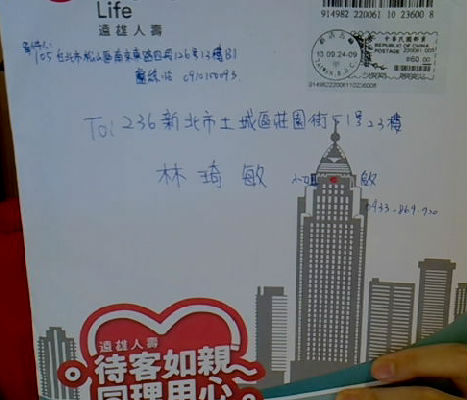 Life
遠雄人壽
914982 220061 10 23600 8
105 台北市松山區南京東路四段126號13樓B1
To: 236 新北市土城區莊園街51號23樓
林琦敏
中華民國郵票
REPUBLIC OF CHINA
POSTAGE
60.00
13.09.24-09
91498222006110236008
遠雄人壽
待客如親
同理用心